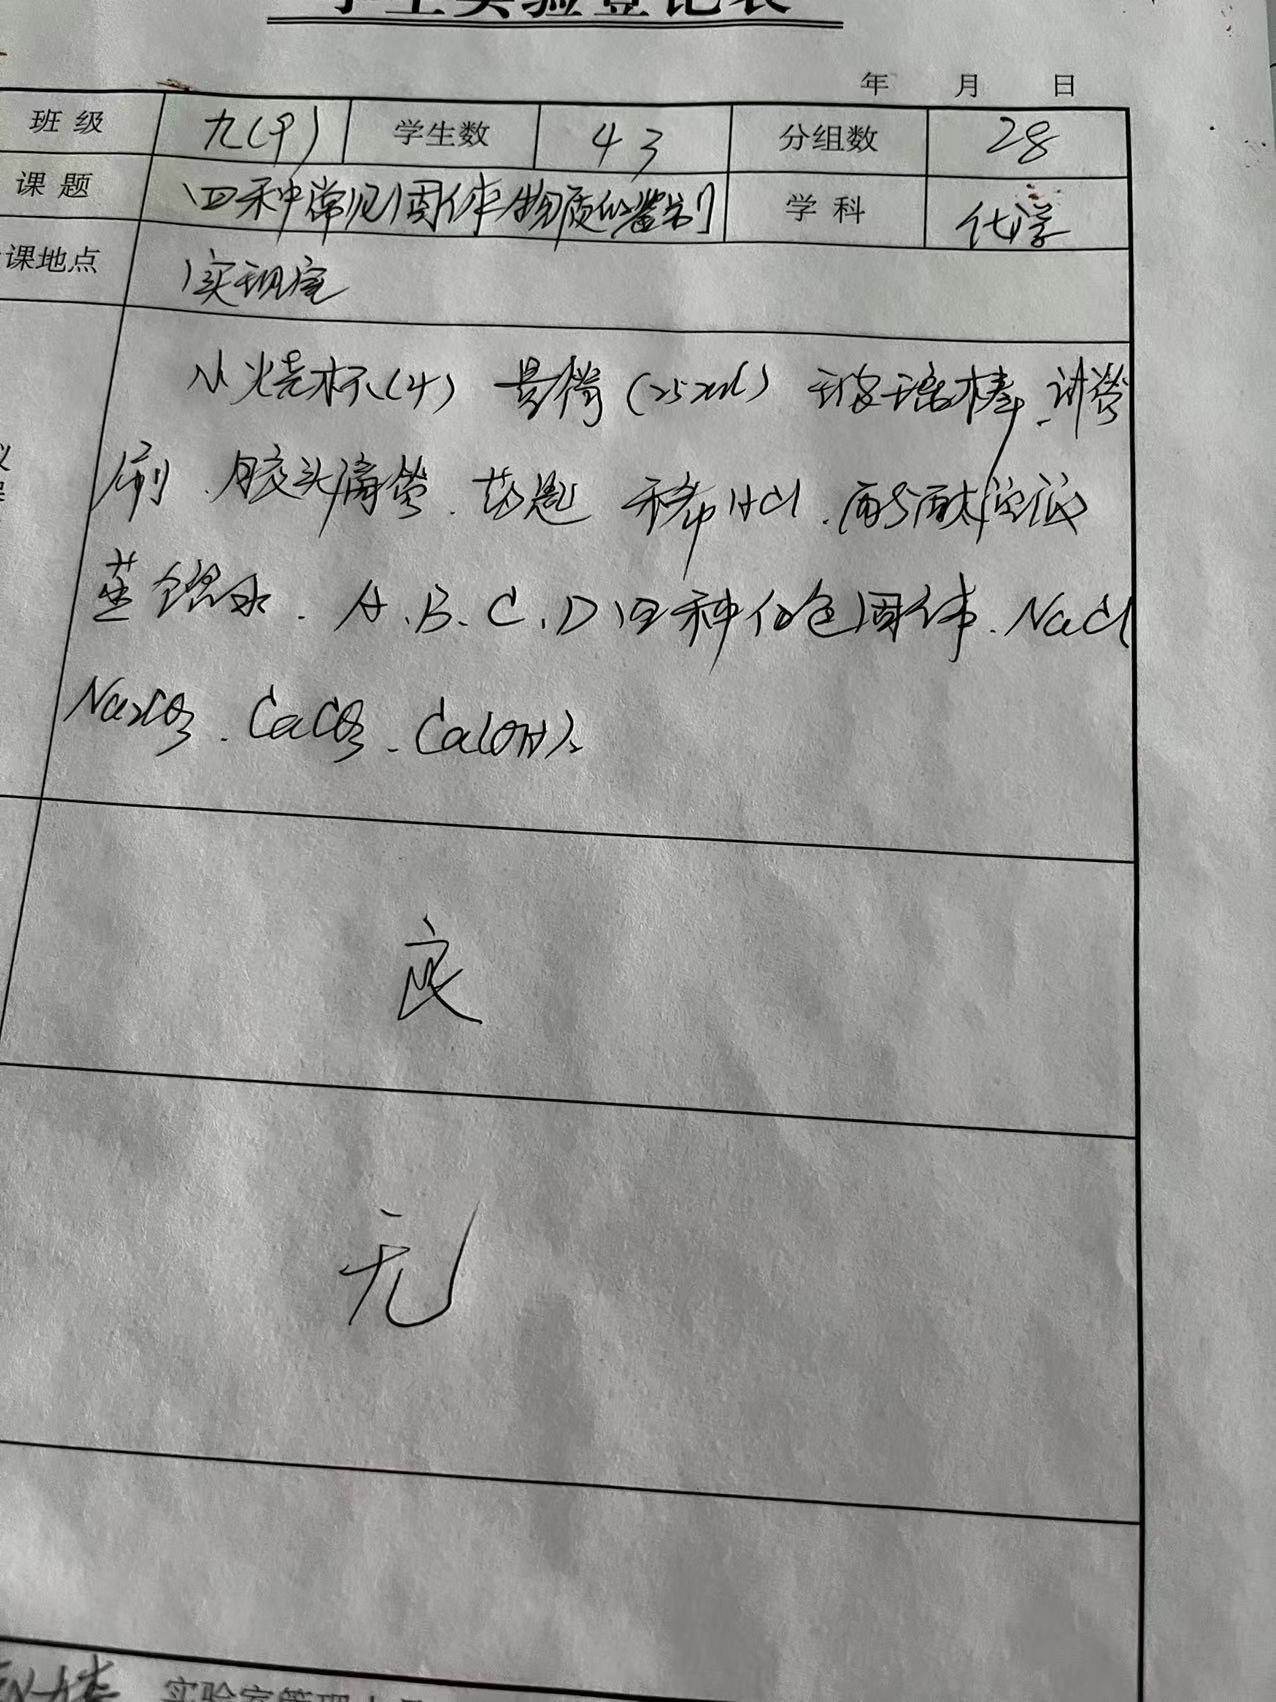 学生实验登记表
年 月 日
班级 九(9) 学生数 43 分组数 28
课题 四种常见固体物质的鉴别 学科 化学
课地点 实验室
小烧杯(4) 量筒(25ml) 玻璃棒、试管
刷、胶头滴管、药匙 稀HCl、酚酞溶液
蒸馏水、A、B、C、D四种白色固体、NaCl
Na2CO3、CaCO3、Ca(OH)2
良
无
实验室管理